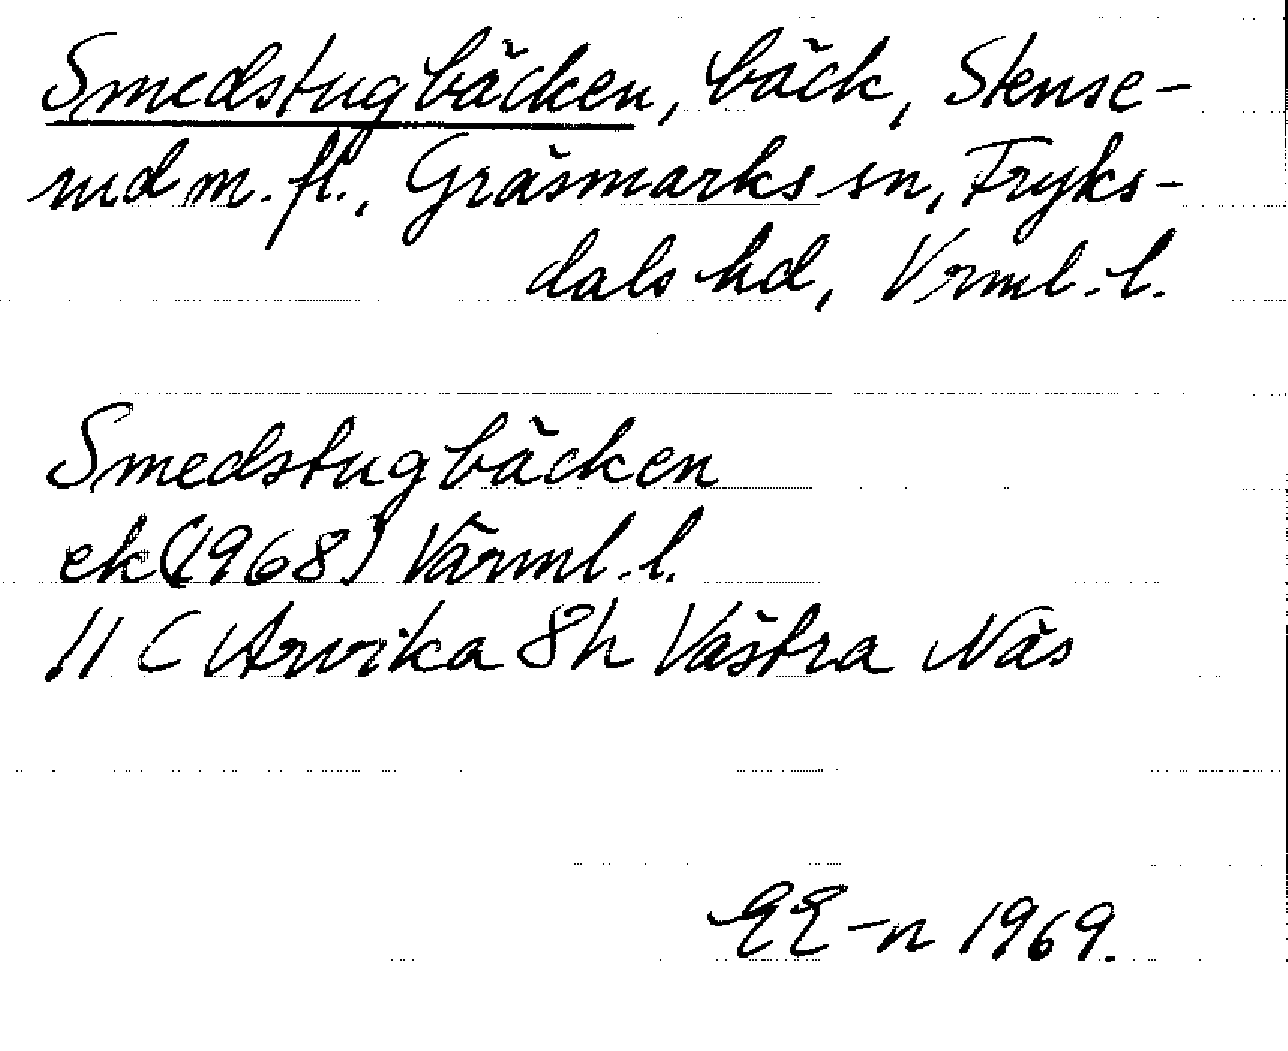 Smedstugbäcken, bäck, Stense-
rud m.fl., Gräsmarks sn, Fryks-
dals hd, Vrml.l.
Smedstugbäcken
ek (1968) Värml.l.
11 C Arvika 8h Västra Näs
EE-n 1969.